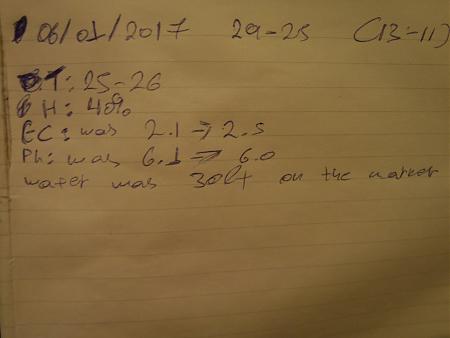 06/01/2017 29-25 (13-11)
T: 25-26
H: 40%
EC: was 2.1 → 2.5
Ph: was 6.1 → 6.0
water was 30lt on the marker